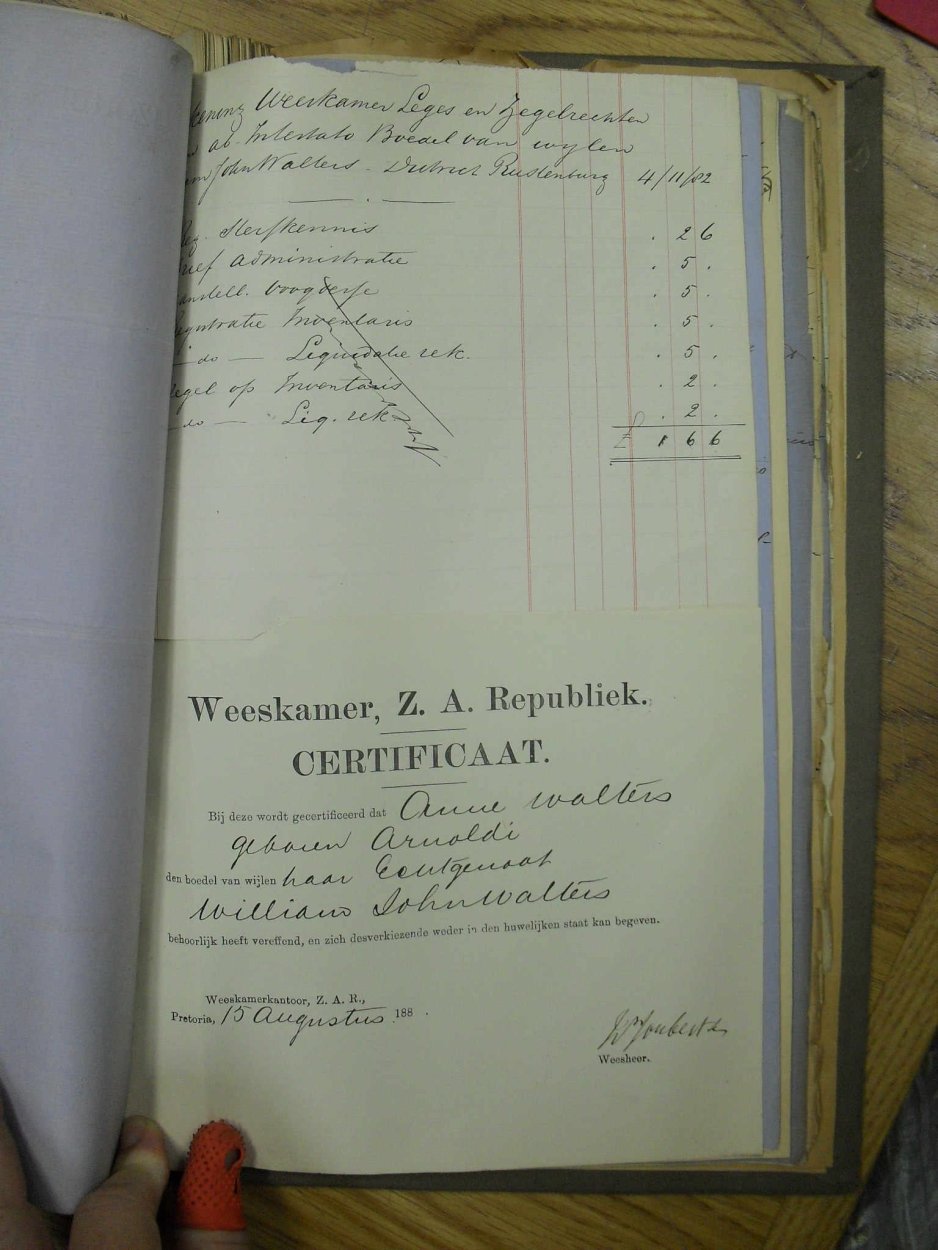 Weeskamer Leges en Zegelrechten
ab. Intestato Boedel van wylen
John Walters - District Rustenburg 4/11/82
Sterfkennis . 2 6
administratie . 5 .
. 5 .
Inventaris . 5 .
- do - Liquidatie rek. . 5 .
op Inventaris . 2 .
- do - Liq. rek . 2 .
£ 1 6 6
Weeskamer, Z. A. Republiek.
CERTIFICAAT.
Bij deze wordt gecertificeerd dat Anne Walters
geboren Arnoldi
den boedel van wijlen haar Echtgenoot
William John Walters
behoorlijk heeft vereffend, en zich desverkiezende weder in den huwelijken staat kan begeven.
Weeskamerkantoor, Z. A. R.,
Pretoria, 15 Augustus 188 .
Joubert
Weesheer.